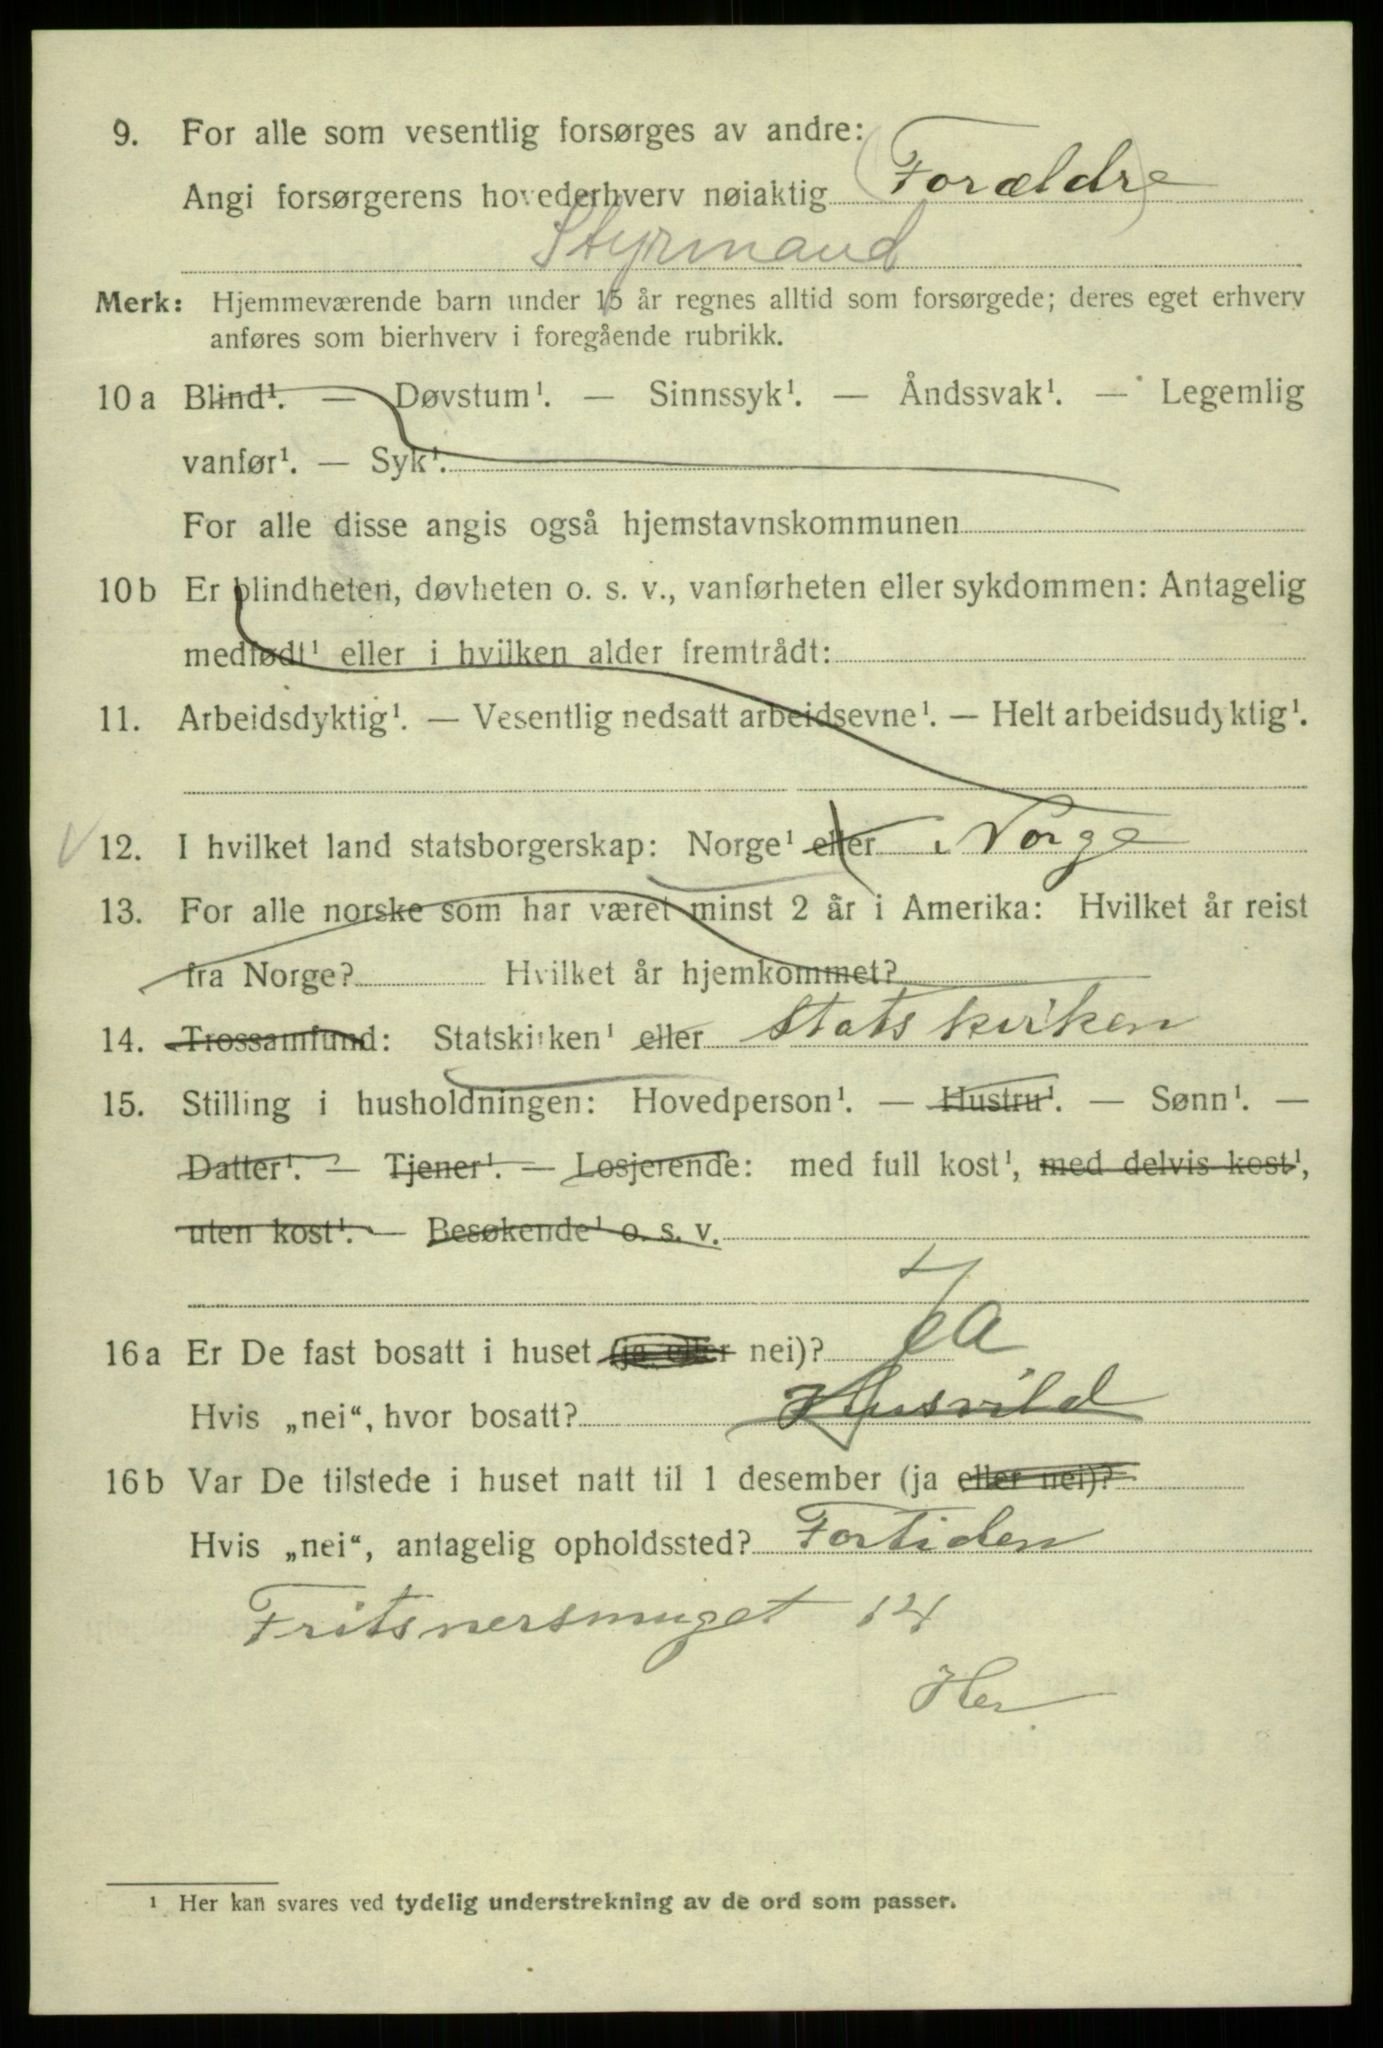 9. For alle som vesentlig forsørges av andre:
Angi forsørgerens hovederhverv nøiaktig (Forældre)
Styrmand
Merk: Hjemmeværende barn under 15 år regnes alltid som forsørgede; deres eget erhverv
anføres som bierhverv i foregående rubrikk.
10 a Blind¹. — Døvstum¹. — Sinnssyk¹. — Åndssvak¹. — Legemlig
vanfør¹. — Syk¹.
For alle disse angis også hjemstavnskommunen
10 b Er blindheten, døvheten o. s. v., vanførheten eller sykdommen: Antagelig
medfødt¹ eller i hvilken alder fremtrådt:
11. Arbeidsdyktig¹. — Vesentlig nedsatt arbeidsevne¹. — Helt arbeidsudyktig¹.
12. I hvilket land statsborgerskap: Norge¹ eller i Norge
13. For alle norske som har været minst 2 år i Amerika: Hvilket år reist
fra Norge? Hvilket år hjemkommet?
14. Trossamfund: Statskirken¹ eller Statskirken
15. Stilling i husholdningen: Hovedperson¹. — Hustru¹. — Sønn¹. —
Datter¹. — Tjener¹. — Losjerende: med full kost¹, med delvis kost¹,
uten kost¹. — Besøkende¹ o. s. v.
16 a Er De fast bosatt i huset (ja eller nei)? Ja
Hvis „nei“, hvor bosatt? Husvild
16 b Var De tilstede i huset natt til 1 desember (ja eller nei)?
Hvis „nei“, antagelig opholdssted? Fortiden
Fritsnersmuget 14
Her
¹ Her kan svares ved tydelig understrekning av de ord som passer.